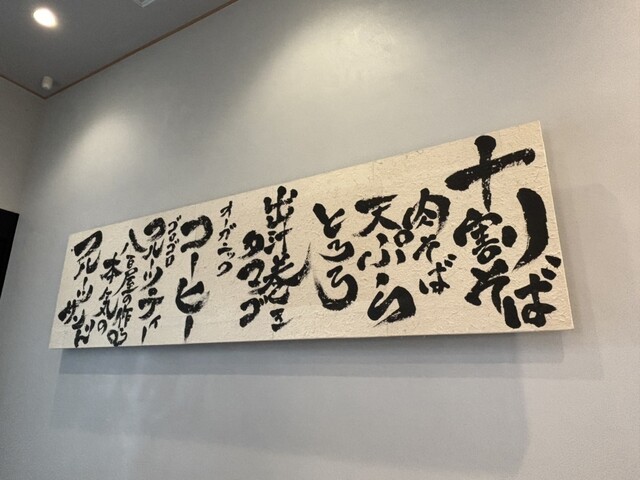 十割そば
肉そば
天ぷら
とろろ
出汁巻き
タマゴ
オーガニック
コーヒー
ゴロゴロ
フルーツティー
八百屋の作る
本気の
フルーツサンド